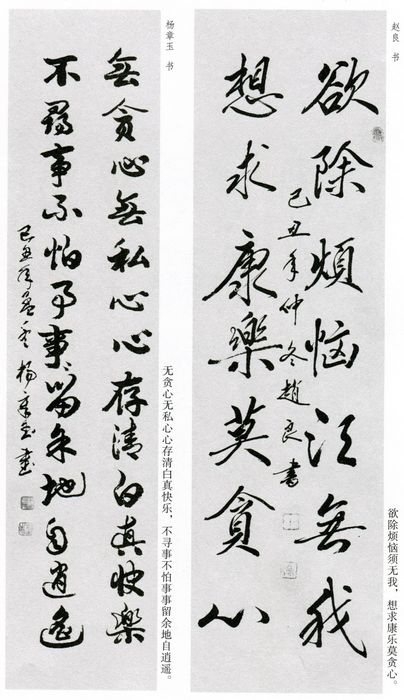 赵良 书
欲除煩惱須無我
想求康樂莫貪心
己丑年仲冬趙良書
欲除烦恼须无我，想求康乐莫贪心。
杨章玉 书
無貪心無私心心存清白真快樂
不尋事不怕事事留余地自逍遥
己丑年
无贪心无私心心存清白真快乐，不寻事不怕事事留余地自逍遥。